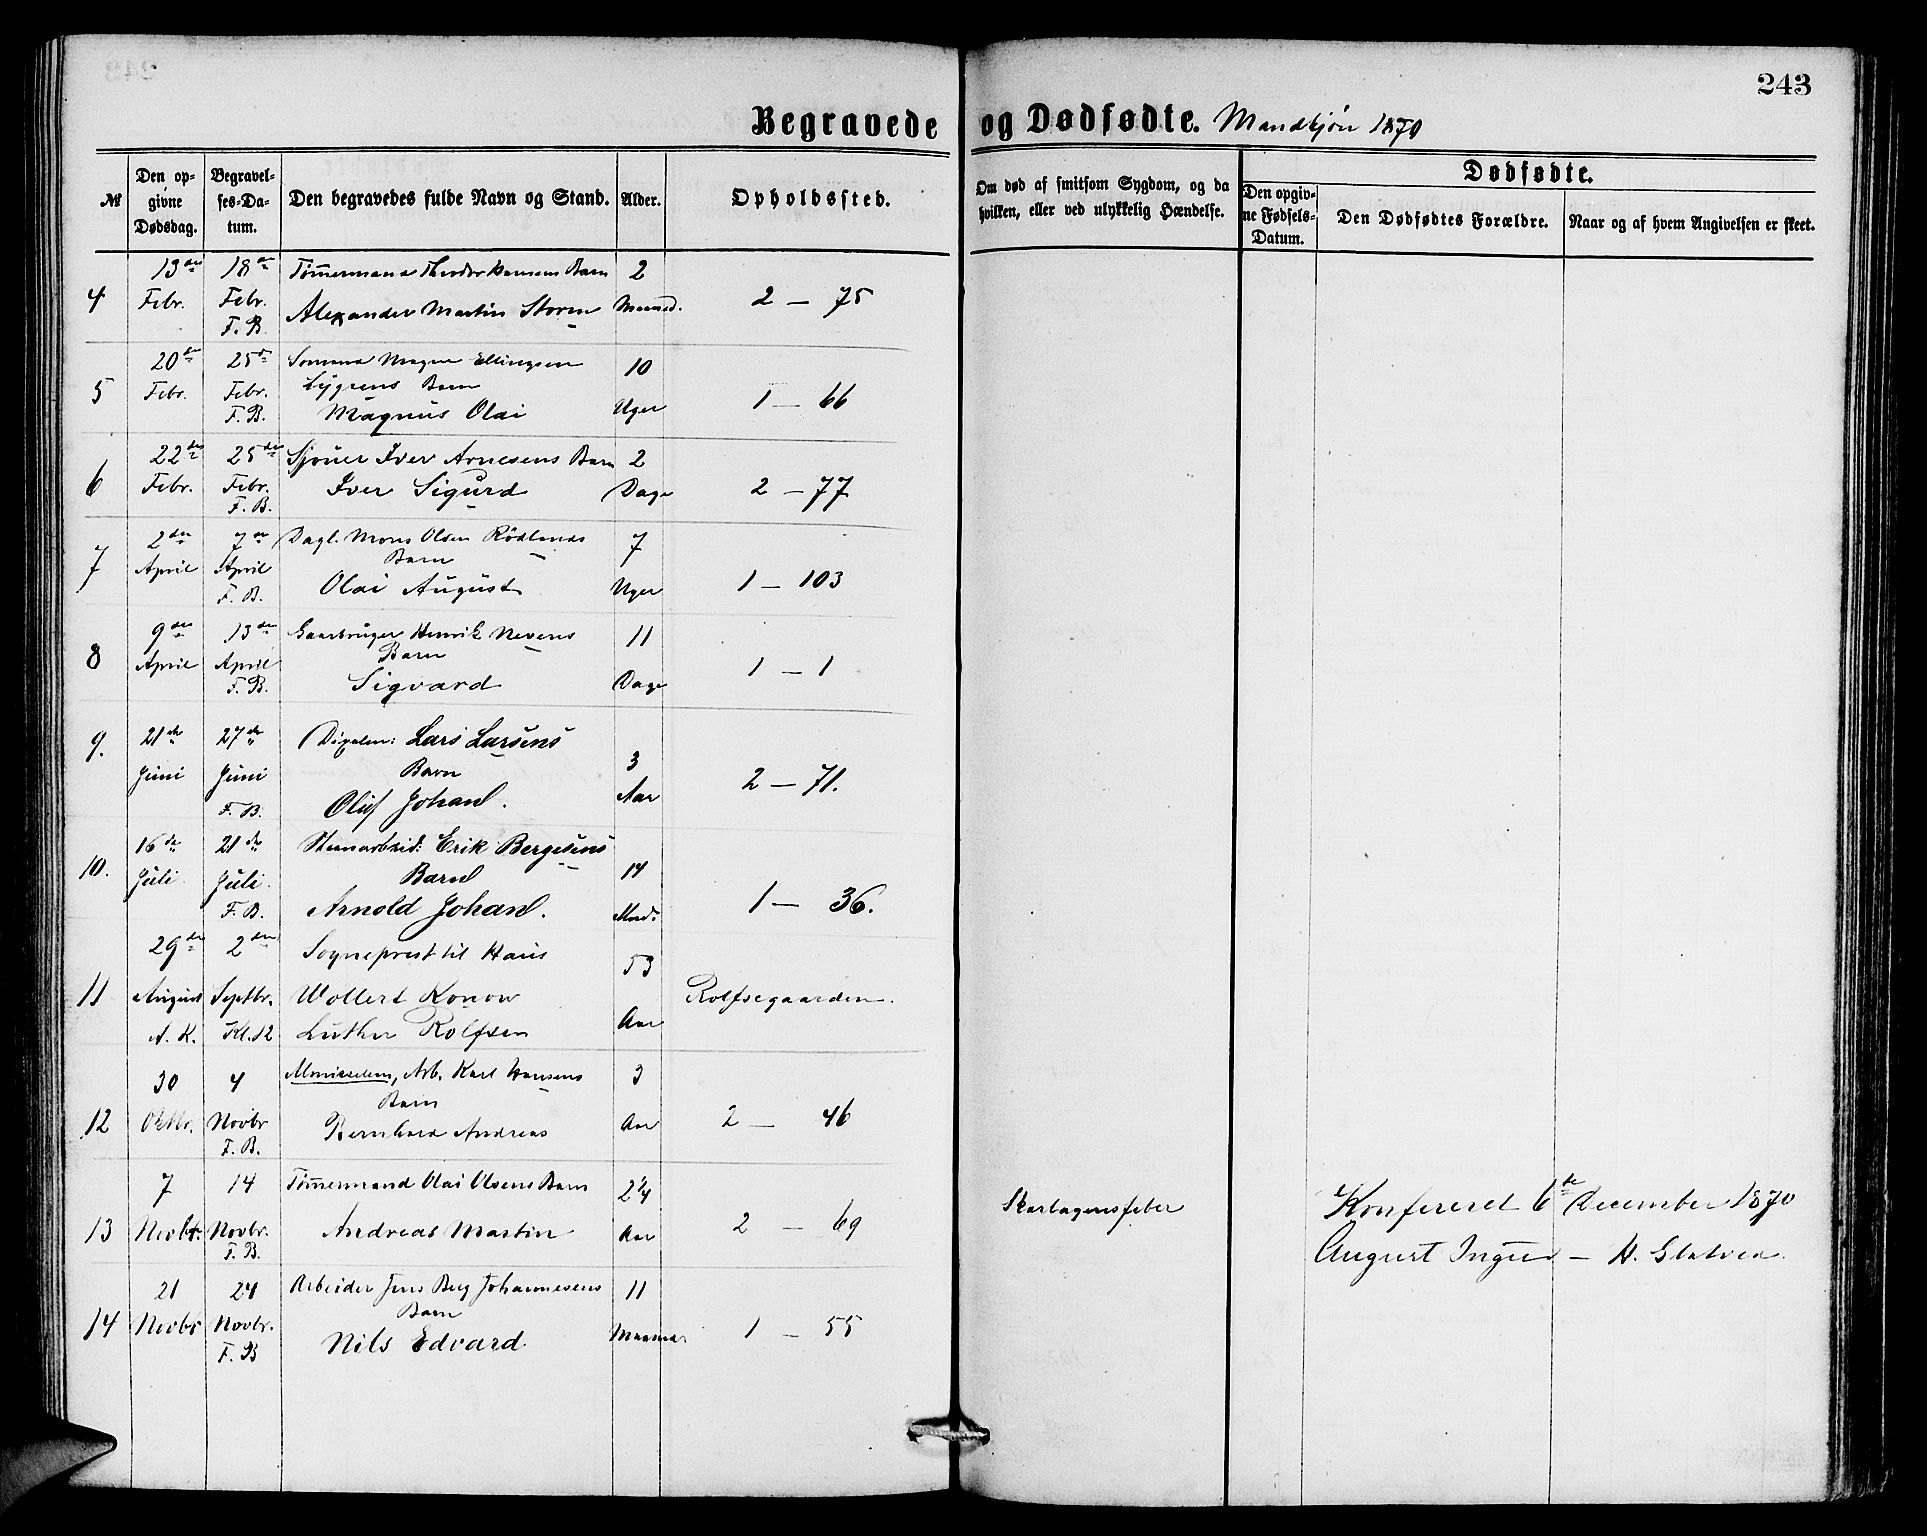 243
Begravede og Dødfødte. Mandkjøn 1870
№
Den op-
givne
Dødsdag.
Begravel-
ses-Da-
tum.
Den begravedes fulde Navn og Stand.
Alder.
Opholdssted.
Om død af smitsom Sygdom, og da
hvilken, eller ved ulykkelig Hændelse.
Dødfødte.
Den opgiv-
ne Fødsels-
Datum.
Den Dødfødtes Forældre.
Naar og af hvem Angivelsen er skeet.
13de 18de Tømermand Theodor Hansens Barn 2
4 Febr. Febr. Alexander Martin Storm Maaned. 2 — 75
F. B.
20de 25de Magne Ellingsen 10
Lygrens Barn
5 Febr. Febr. Magnus Olai Uger 1 — 66
F. B.
22de 25de Sjouer Iver Arnesens Barn 2
6 Febr. Febr. Iver Sigurd Dage 2 — 77
F. B.
2den 7de Dagl. Mons Olsen Rödlands 7
Barn
7 April April Olai August Uger 1 — 103
F. B.
9den 13de Henrik Nevens 11
Barn
8 April April Sigvard Dage 1 — 1
F. B.
9. 21de 27de Lars Larsens
Juni Juni Barn 3
F. B. Oluf Johan. Aar 2 — 71.
16de 21de Steenarbeid: Erik Bergesens
10. Juli Juli. Barn 14
F. B. Arnold Johan. Mnd. 1 — 36.
29de 2den Sogneprest til Haus 53
11 August Septbr. Wollert Konow Rolfsegaarden.
A. K. Kl. 12 Luther Rolfsen Aar
30 4 Arb. Karl Hansens 3
Barn
12 Oktbr. Novbr Bernhard Andreas Aar 2 — 46
F. B.
7 14 Tømermand Olai Olsens Barn 2 1/4
13 Novbr. Novbr. Andreas Martin Aar 2 — 69 Skarlagensfeber
F. B.
Konfereret 6te December 1870
August — H. Slatved.
21 24 Arbeider Jens Berg Johannesens 11
Barn
14 Novbr Novbr. Nils Edvard Maaned 1 — 55
F. B